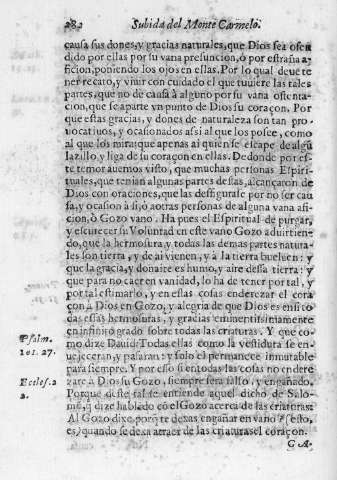 282 Subida del Monte Carmelo.
causa sus dones, y gracias naturales, que Dios sea ofen
dido por ellas por su vana presuncion, ò por estraña a-
ficion, poniendo los ojos en ellas. Por lo qual deue te
ner recato, y viuir con cuidado el que tuuiere las tales
partes, que no de causa à alguno por su vana ostenta-
cion, que se aparte vn punto de Dios su coraçon. Por
que estas gracias, y dones de naturaleza son tan pro-
uocatiuos, y ocasionados assi al que los posee, como
al que los mira; que apenas ai quien se escape de algũ
lazillo, y liga de su coraçon en ellas. De donde por es-
te temor auemos visto, que muchas personas Espiri-
tuales, que tenian algunas partes destas, alcançaron de
Dios con oraciones, que las desfigurase por no ser cau
sa, y ocasion à si, ò à otras personas de alguna vana afi-
cion, ò Gozo vano. Ha pues el Espiritual de purgar,
y escurecer su Voluntad en este vano Gozo aduirtien-
do, que la hermosura, y todas las demas partes natura-
les son tierra, y de ai vienen, y à la tierra bueluen: y
que la gracia, y donaire es humo, y aire dessa tierra: y
que para no caer en vanidad, lo ha de tener por tal, y
por tal estimarlo, y en estas cosas enderezar el cora
çon à Dios en Gozo, y alegria de que Dios es en si to
das essas hermosuras, y gracias eminentissimamente
en infinito grado sobre todas las criaturas. Y que co-
mo dize Dauid: Todas ellas como la vestidura se en-
uejeceran, y pasaran: y solo el permanece inmutable
para siempre. Y por esso si en todas las cosas no endere
zare à Dios su Gozo, siempre sera falso, y engañado.
Porque deste tal se entiende aquel dicho de Salo-
mõ, q̃ dize hablado cõ el Gozo acerca de las criaturas:
Al Gozo dixe, porq̃ te dexas engañar en vano? esto,
es, quando se dexa atraer de las criaturas el coraçon.
C A-
Psalm.
101. 27.
Eccles. 2
2.